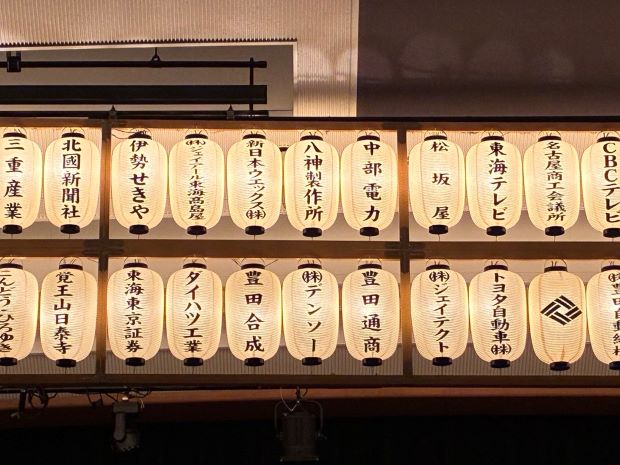 三重産業
北國新聞社
伊勢せきや
㈱ジェイアール東海髙島屋
新日本ウエックス㈱
八神製作所
中部電力
松坂屋
東海テレビ
名古屋商工会議所
CBCテレビ
こんどうひろゆき
覚王山日泰寺
東海東京証券
ダイハツ工業
豊田合成
㈱デンソー
豊田通商
㈱ジェイテクト
トヨタ自動車㈱
㈱豊田自動織機